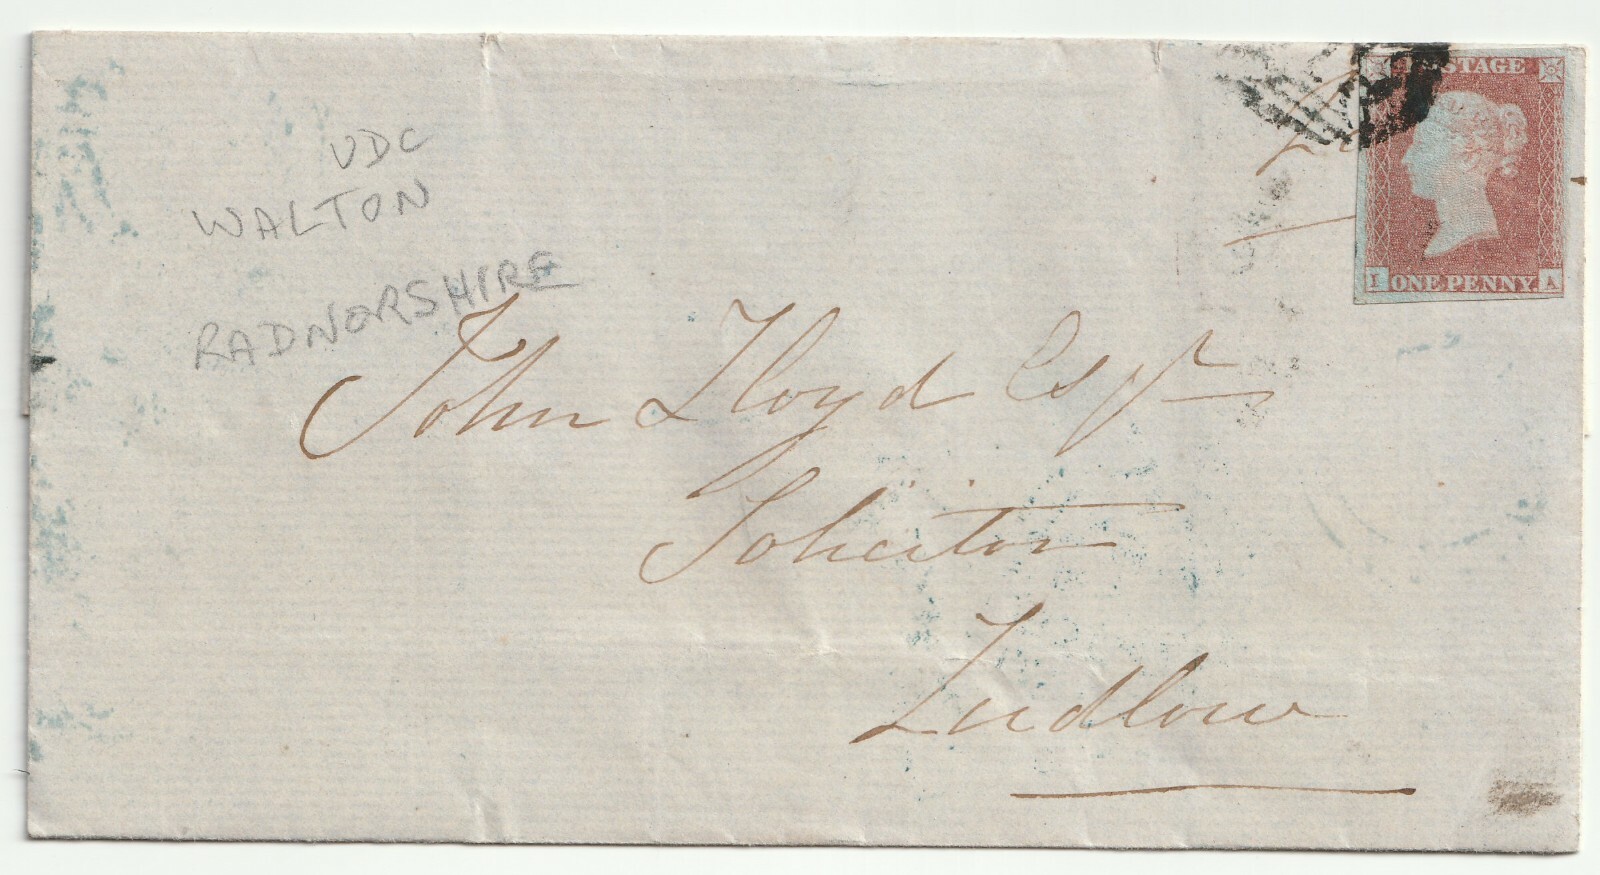 UDC
WALTON
RADNORSHIRE
POSTAGE
I ONE PENNY A
John Lloyd Esqr
Solicitor
Ludlow